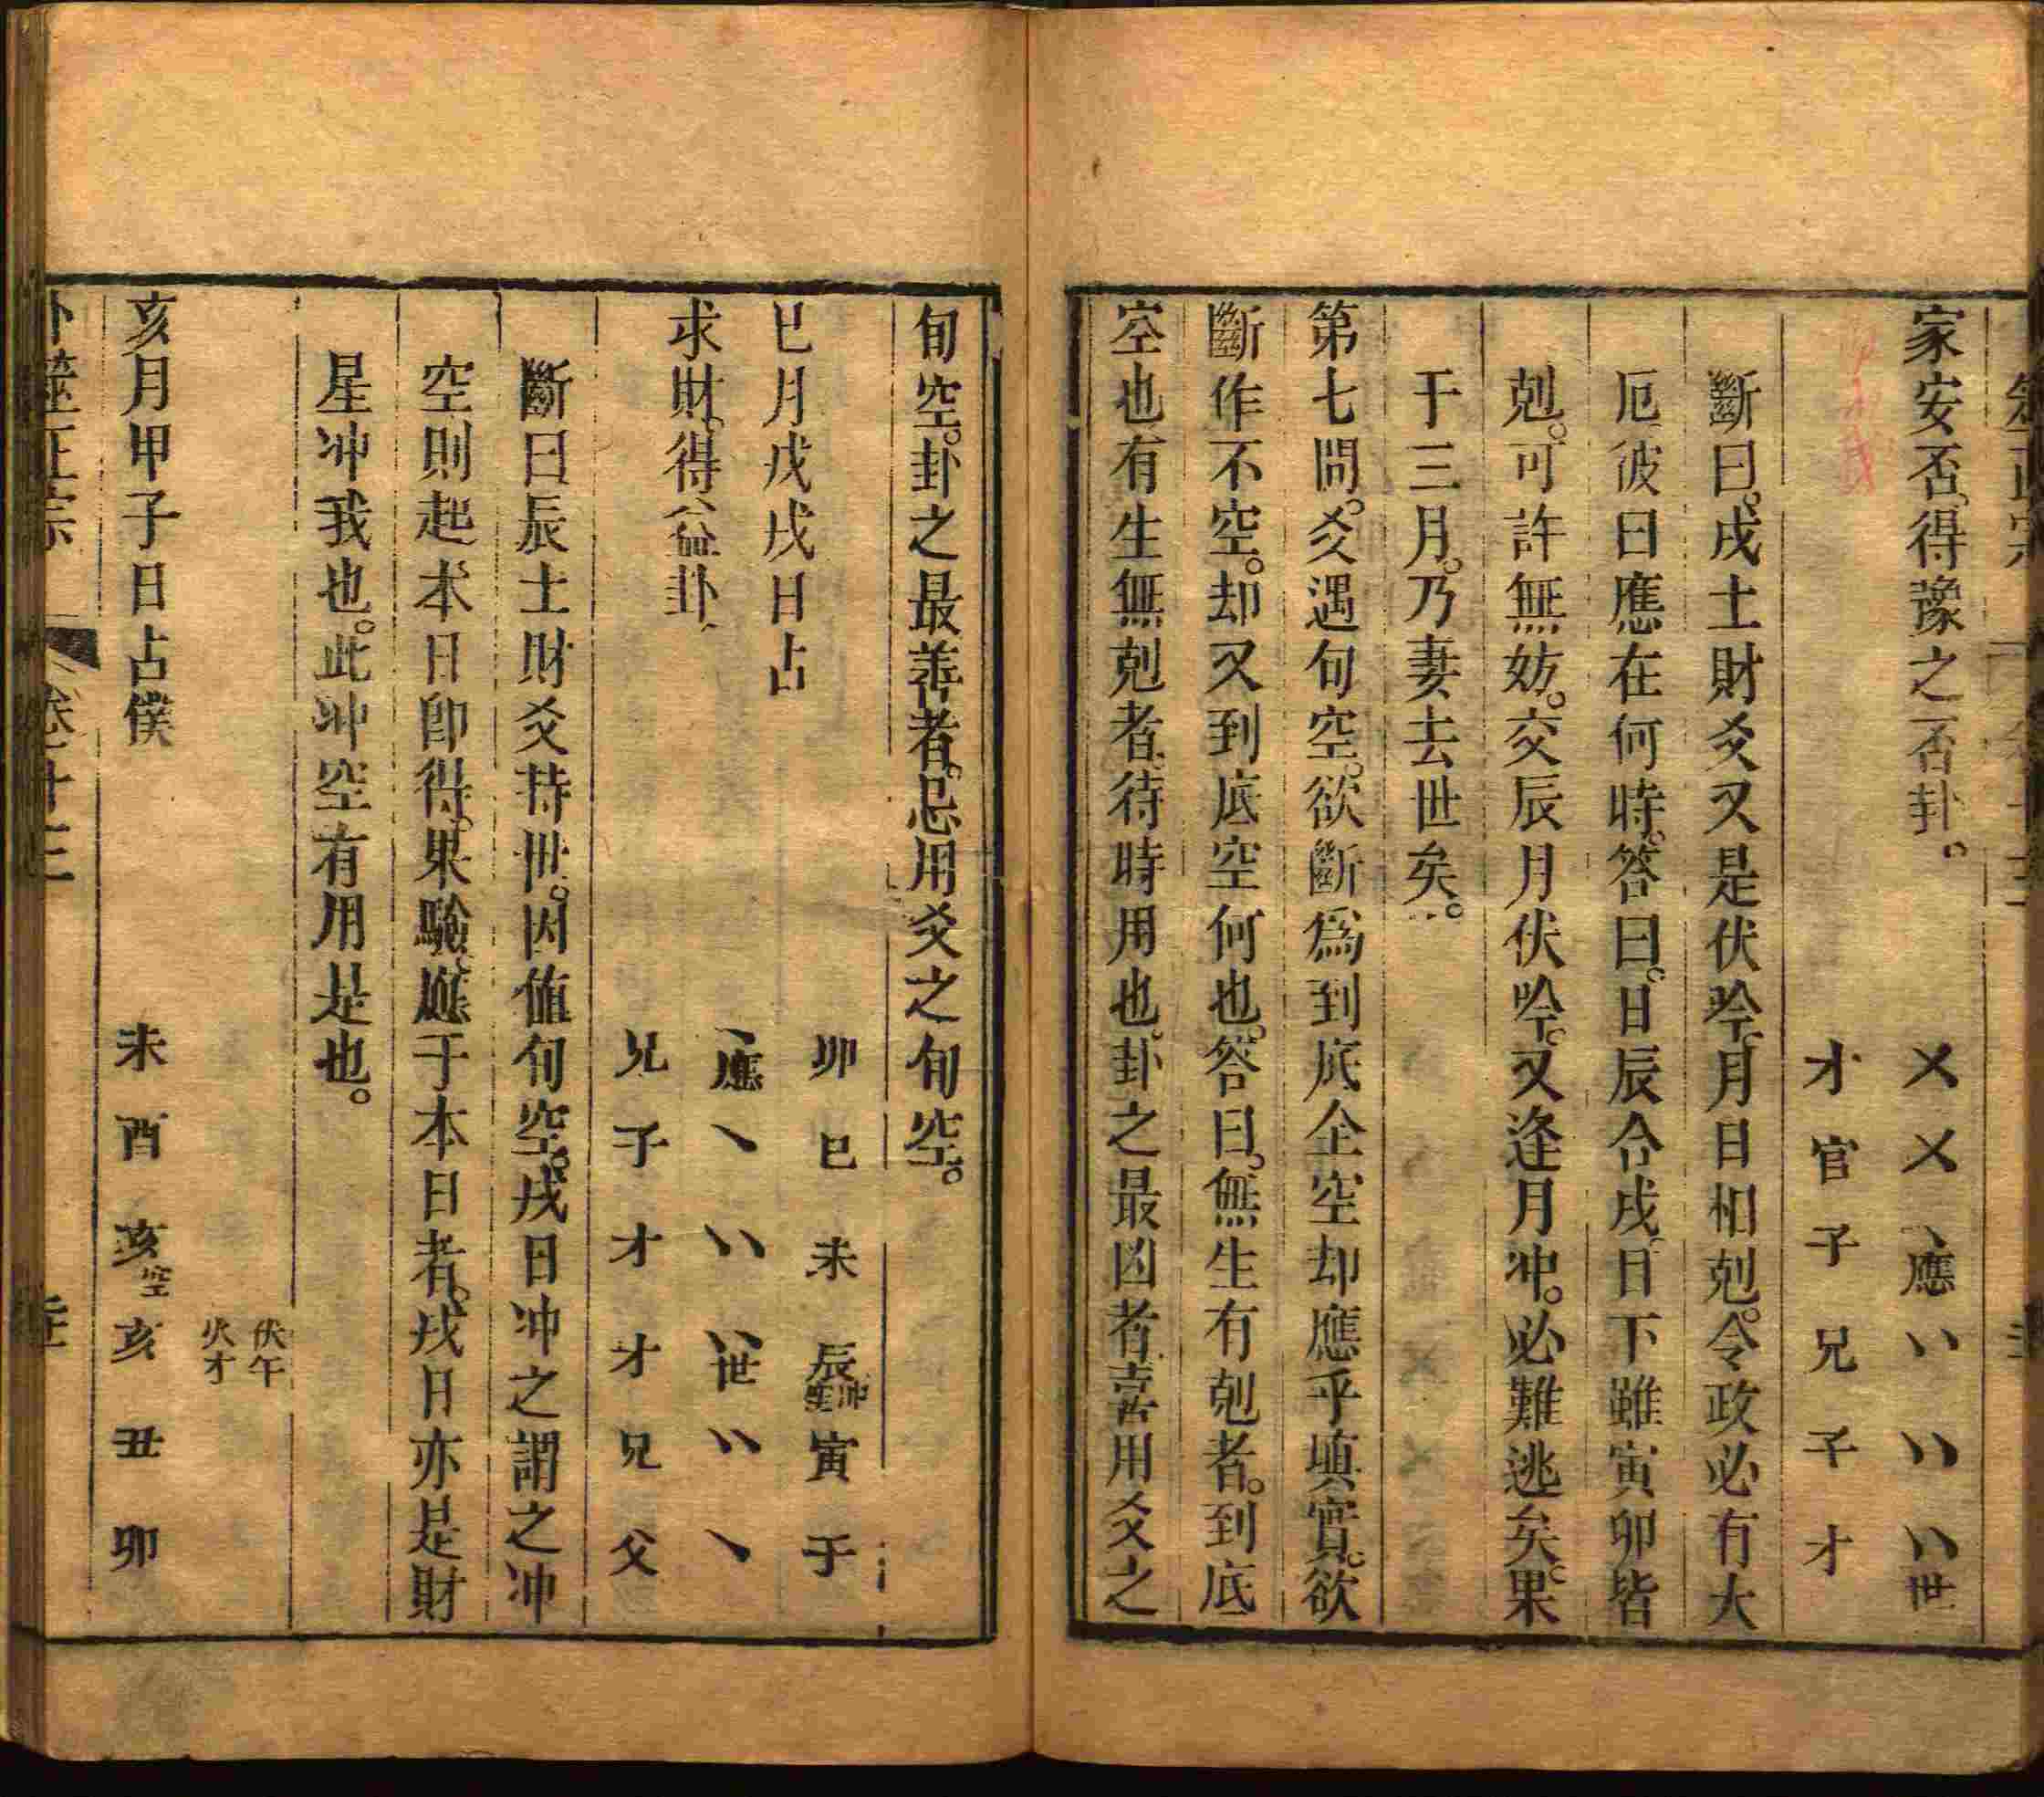 家安否。得豫之否卦。
乂 乂 、應 八 八 八世
才 官 子 兄 子 才
斷曰。戌土財爻又是伏吟。月日相剋。令政必有大
厄彼曰應在何時。答曰。日辰合戌。日下雖寅卯皆
剋。可許無妨。交辰月伏吟。又逢月冲。必難逃矣。果
于三月。乃妻去世矣。
第七問。爻遇旬空。欲斷爲到底全空却應乎填實。欲
斷作不空。却又到底空何也。答曰。無生有剋者。到底
空也有生無剋者。待時用也。卦之最凶者。喜用爻之
旬空。卦之最善者。忌用爻之旬空。
巳月戊戌日占
卯 巳 未 辰冲空 寅 子
求財。得益卦、
、應 、 八 八世 八 、
兄 子 才 才 兄 父
斷曰辰土財爻持世。因值旬空。戌日冲之謂之冲
空則起本日卽得。果驗。應于本日者。戌日亦是財
星冲我也。此冲空有用是也。
伏午
火才
亥月甲子日占僕
未 酉 亥空 亥 丑 卯
卜筮正宗
卷十三